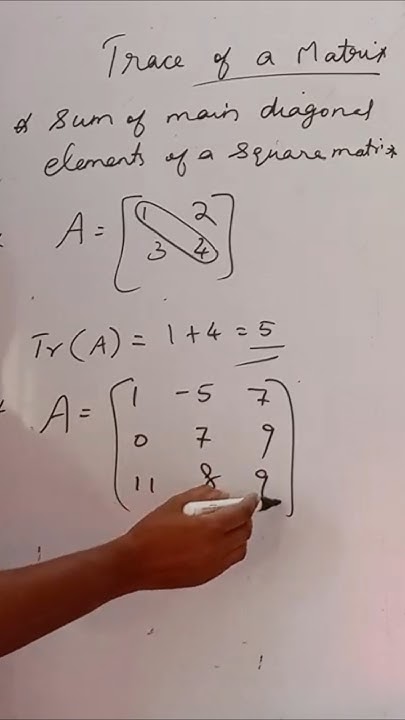 Trace of a Matrix
* Sum of main diagonal
elements of a square matrix
A = [1 2
3 4]
Tr(A) = 1 + 4 = 5
* A = [1 -5 7
0 7 9
11 8 9]